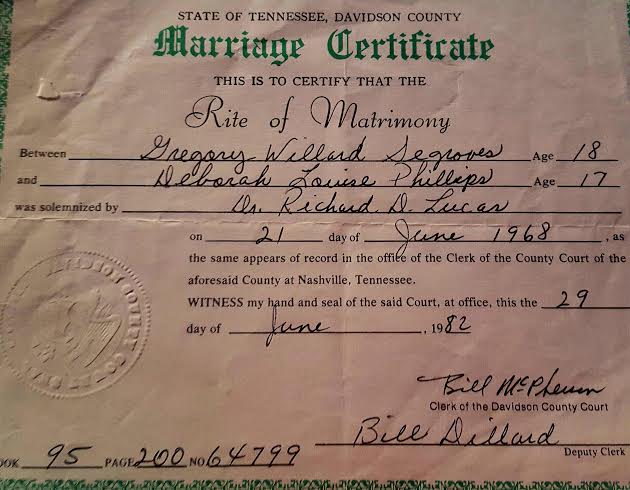 STATE OF TENNESSEE, DAVIDSON COUNTY
Marriage Certificate
THIS IS TO CERTIFY THAT THE
Rite of Matrimony
Between Gregory Willard Segroves Age 18
and Deborah Louise Phillips Age 17
was solemnized by Dr. Richard D. Lucas
on 21 day of June 1968, as
the same appears of record in the office of the Clerk of the County Court of the
aforesaid County at Nashville, Tennessee.
WITNESS my hand and seal of the said Court, at office, this the 29
day of June, 1982
Bill McPherson
Clerk of the Davidson County Court
Bill Dillard
Deputy Clerk
OOK 95 PAGE 200 NO 64799